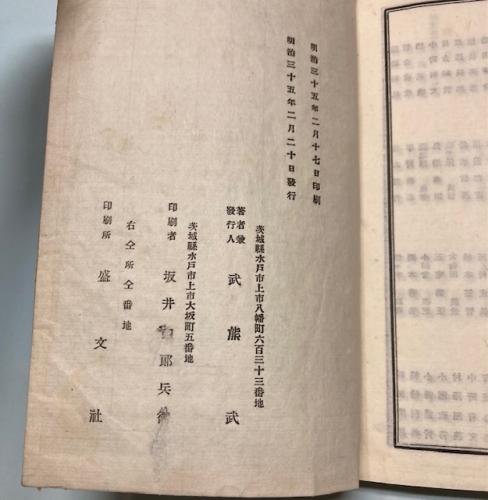 明治三十五年二月十七日印刷
明治三十五年二月二十日發行
茨城縣水戸市上市八幡町六百三十三番地
著者兼
發行人 武熊武
茨城縣水戸市上市大坂町五番地
印刷者 坂井 郎兵衛
右仝所仝番地
印刷所 盛文社